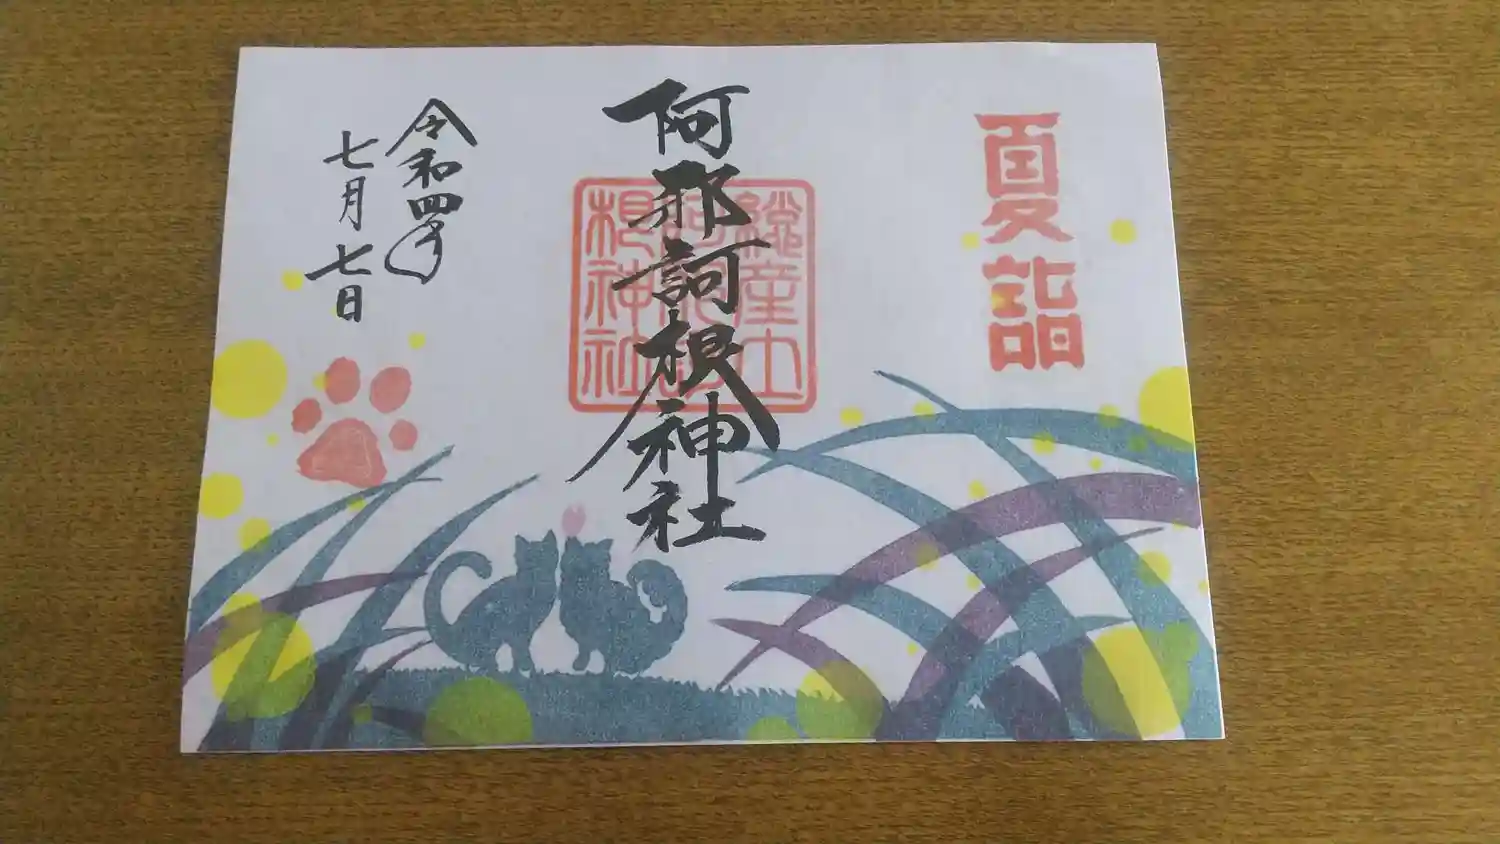 夏詣
阿邪訶根神社
總産土
阿邪訶
根神社
令和四年
七月七日